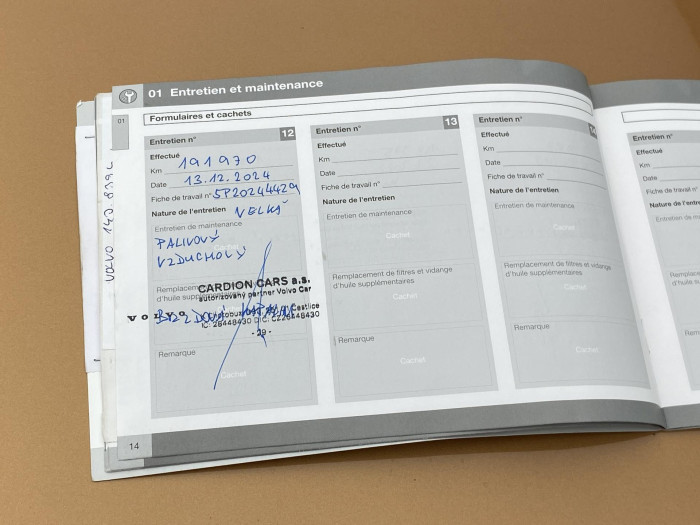 01 Entretien et maintenance
01
Formulaires et cachets
Entretien n° 12
Effectué
Km 191970
Date 13.12.2024
Fiche de travail n° SP20244429
Nature de l'entretien VELKÁ
Entretien de maintenance
PALIVOVÝ
VZDUCHOVÝ
Cachet
CARDION CARS a.s.
autorizovaný partner Volvo Car
VOLVO
Čestlice
IČ: 26448430 DIČ: CZ26448430
- 29 -
Remarque
Cachet
Entretien n° 13
Effectué
Km
Date
Fiche de travail n°
Nature de l'entretien
Entretien de maintenance
Cachet
Remplacement de filtres et vidange
d'huile supplémentaires
Cachet
Remarque
Cachet
Entretien n° 14
Effectué
Km
Date
Fiche de travail n°
Nature de l'entretien
Entretien de maintenance
Cachet
Remplacement de filtres et vidange
d'huile supplémentaires
Cachet
Remarque
Cachet
Entretien n°
Effectué
Km
Date
Fiche de travail
14